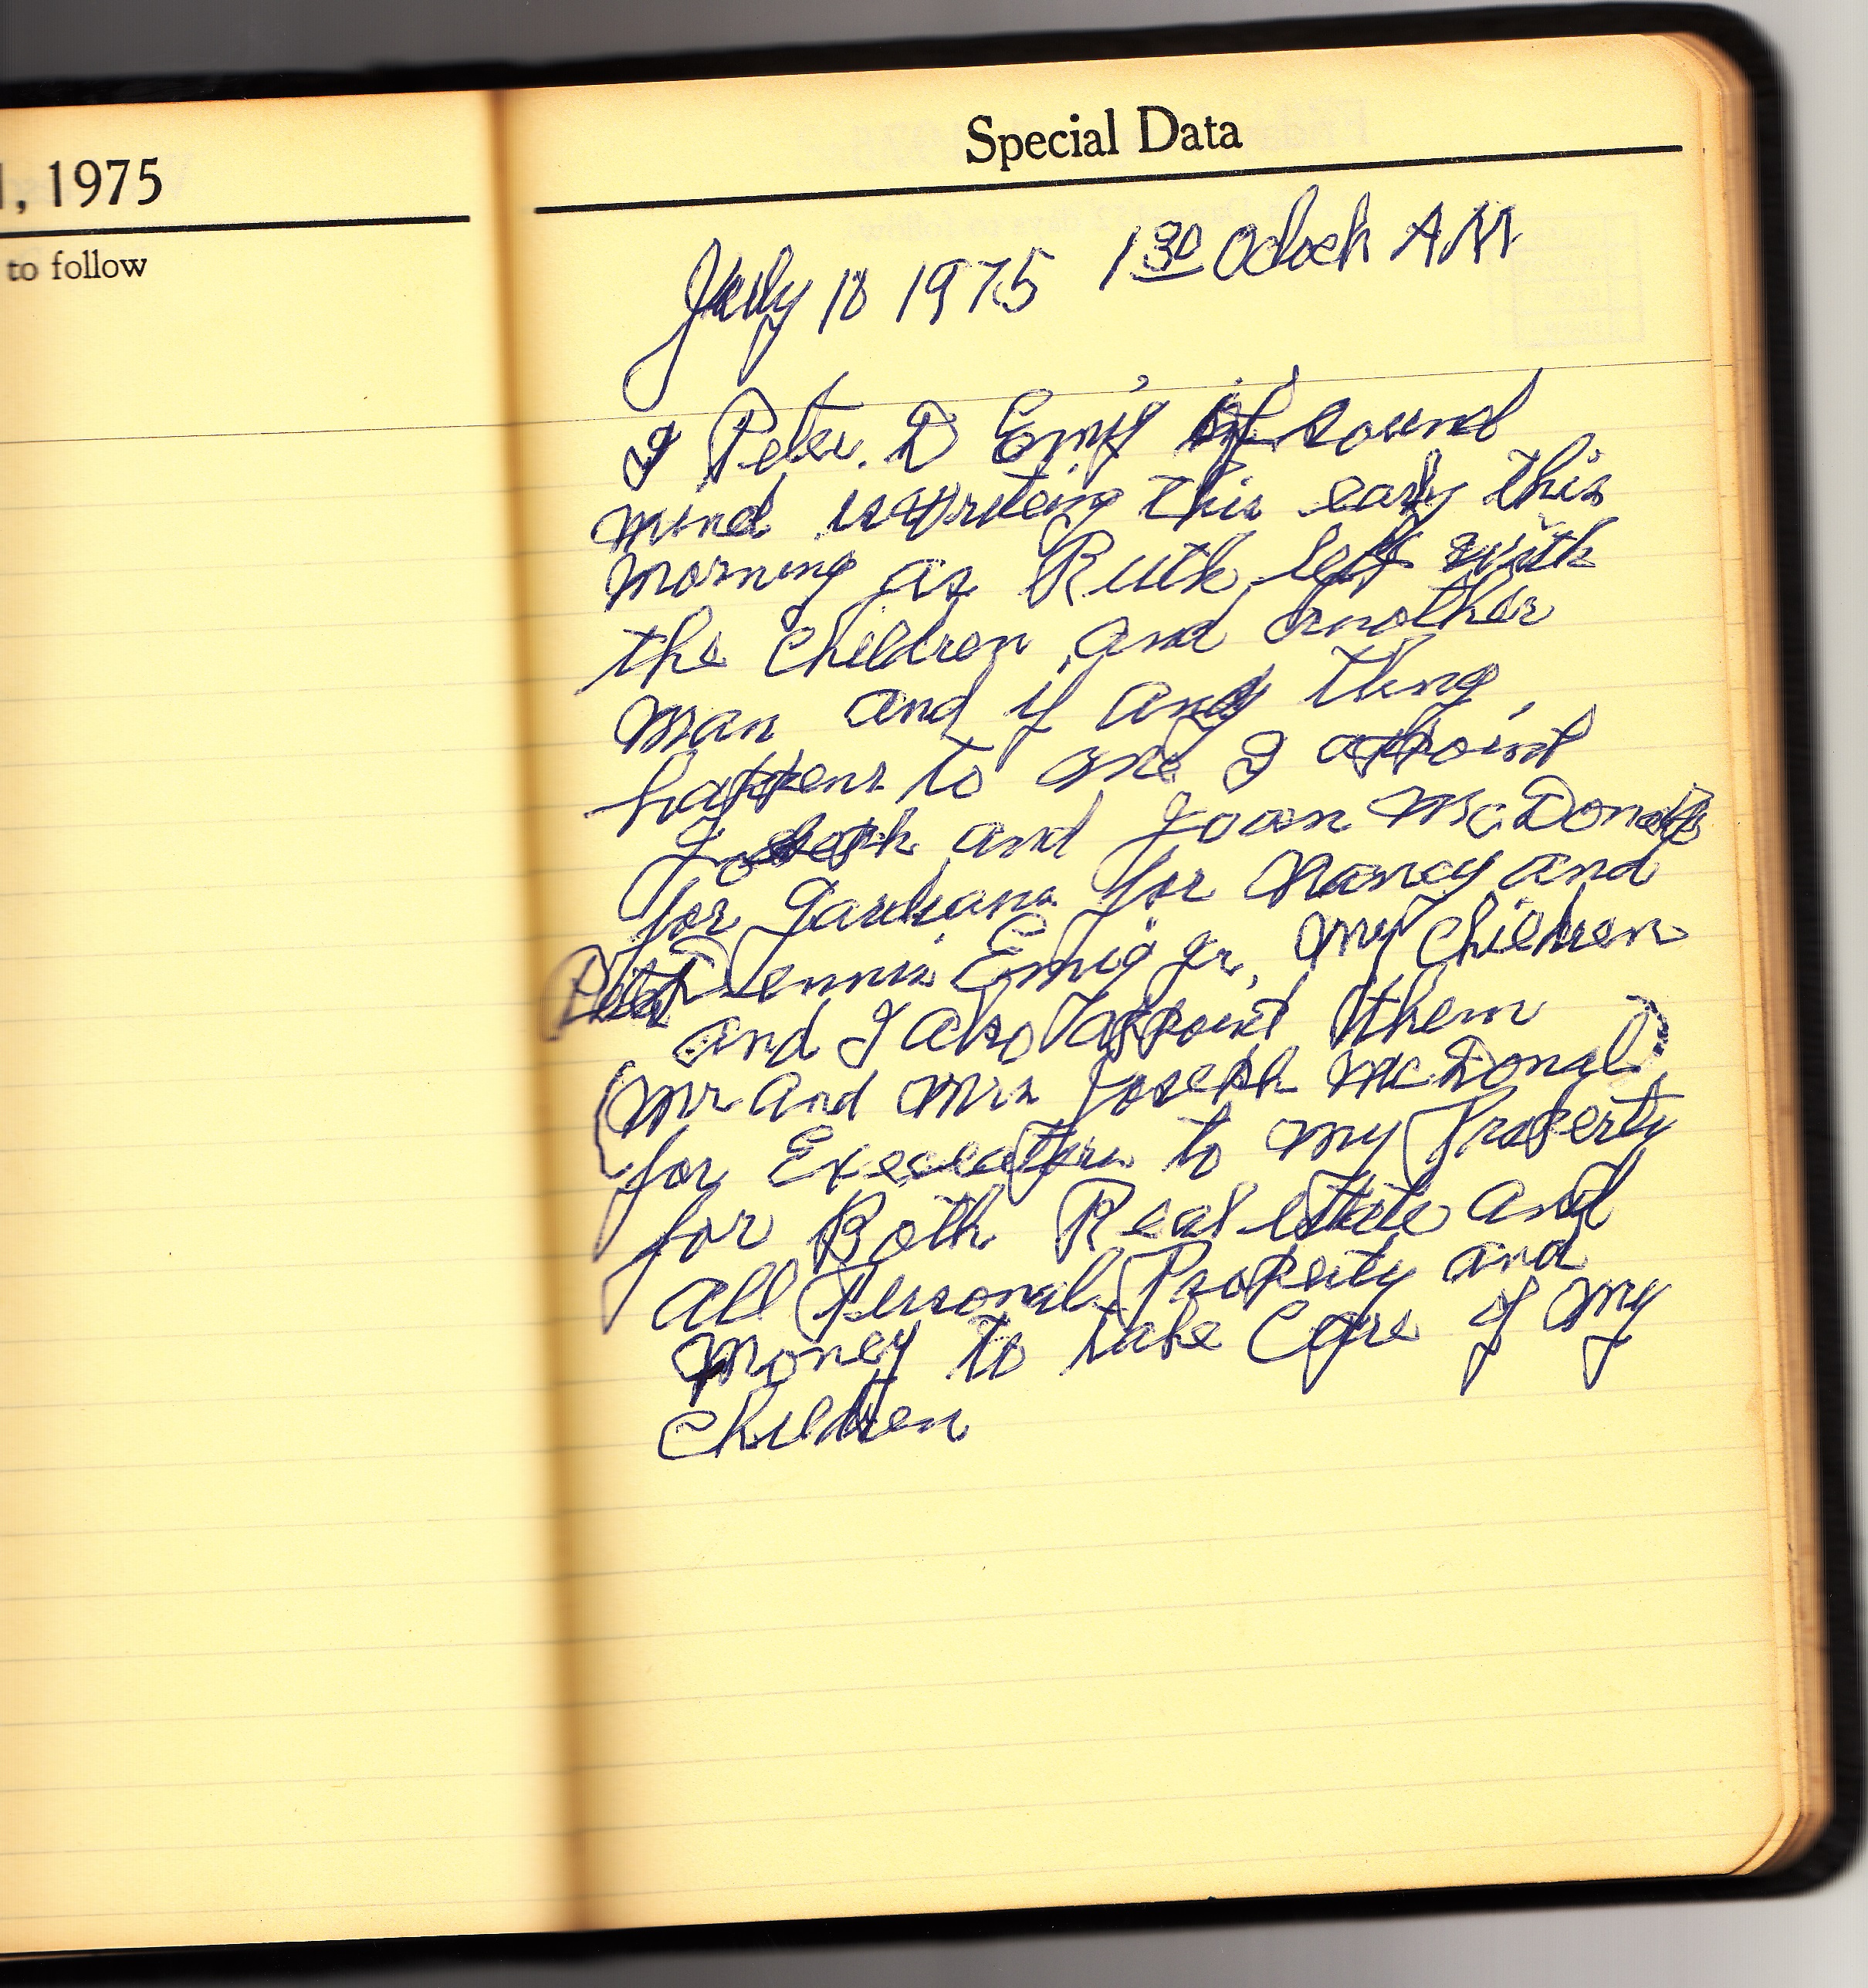 1, 1975
to follow
Special Data
July 18 1975 1 30 Oclock AM
I Peter. D Emig of sound
mind is writeing this early this
morning as Ruth left with
the children and another
man and if any thing
happens to me I appoint
Joseph and Joan McDonald
for Gardians for Nancy and
Peter Dennis Emig Jr. My Children
and I also appoint them
(Mr and Mrs Joseph McDonal)
for to my Property
for Both Real estate and
all Personal Property and
money to take Care of my
Children